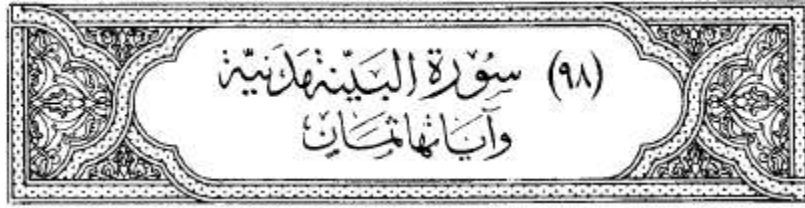 (٩٨) سُوْرَة البَيّنَة مَدَنيَّة
وآيَاتهَا ثمَانٍ